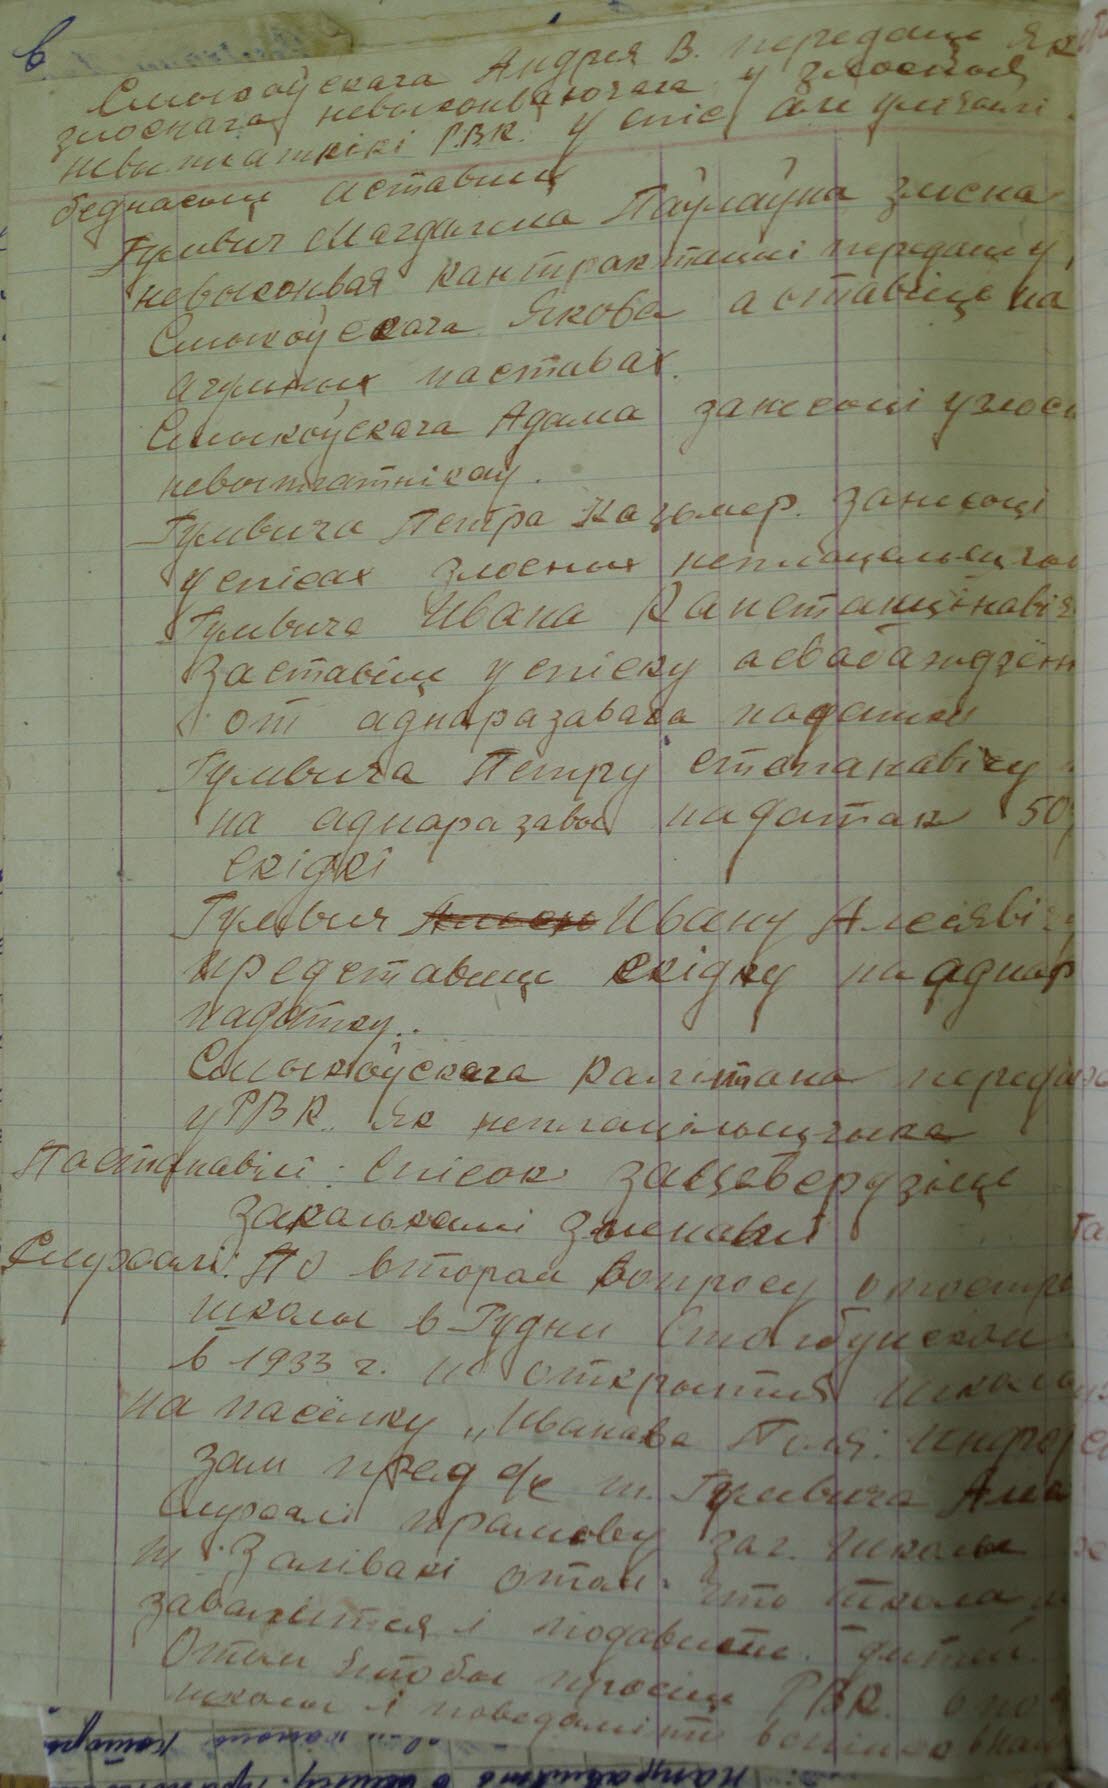 Смыкоўскага Андрея В. передаць Як
злоснага невыконваючага у злосныя
невыплатнікі Р.В.К. у спіс али улічылі
беднасьць аставиць
Гулевич Магдалена Паўлаўна злосна
невыконвая кантрактацыі передаць у
Смыкоўскага Якова аставіць на
агульных паставах.
Смыкоўскага Адама занесьці у злосн
невыплатнікау.
Гулевича Петра Казьмер. занесьці
у спісах злосных неплацельщ
Гулевича Ивана Канстанцінавіч
Заставіць у спіску асвабажджэнн
от аднаразавага падатку
Гулевича Петру Степанавічу
на аднаразавы падатак 50%
Скідкі
Гулевич Ивану Алесявічу
представиць скідку на аднар
падатку..
Смыкоўскага Капитана передаць
у РВК. Як неплацільшчыка
Пастанавілі: Список зацьвердзіць
Слухалі: По второй вопросу о постр
школы в Рудни Столбунской
в 1933 г. и открытия школы
на пасёлку "Иванава Поля:
зам пред с/с т. Гулевича Але
Слухалі прамову заг. школы
т. Залівакі отом. что школа
завалится і подавить дитей.
Отым штобы просиць РВК.
школы і